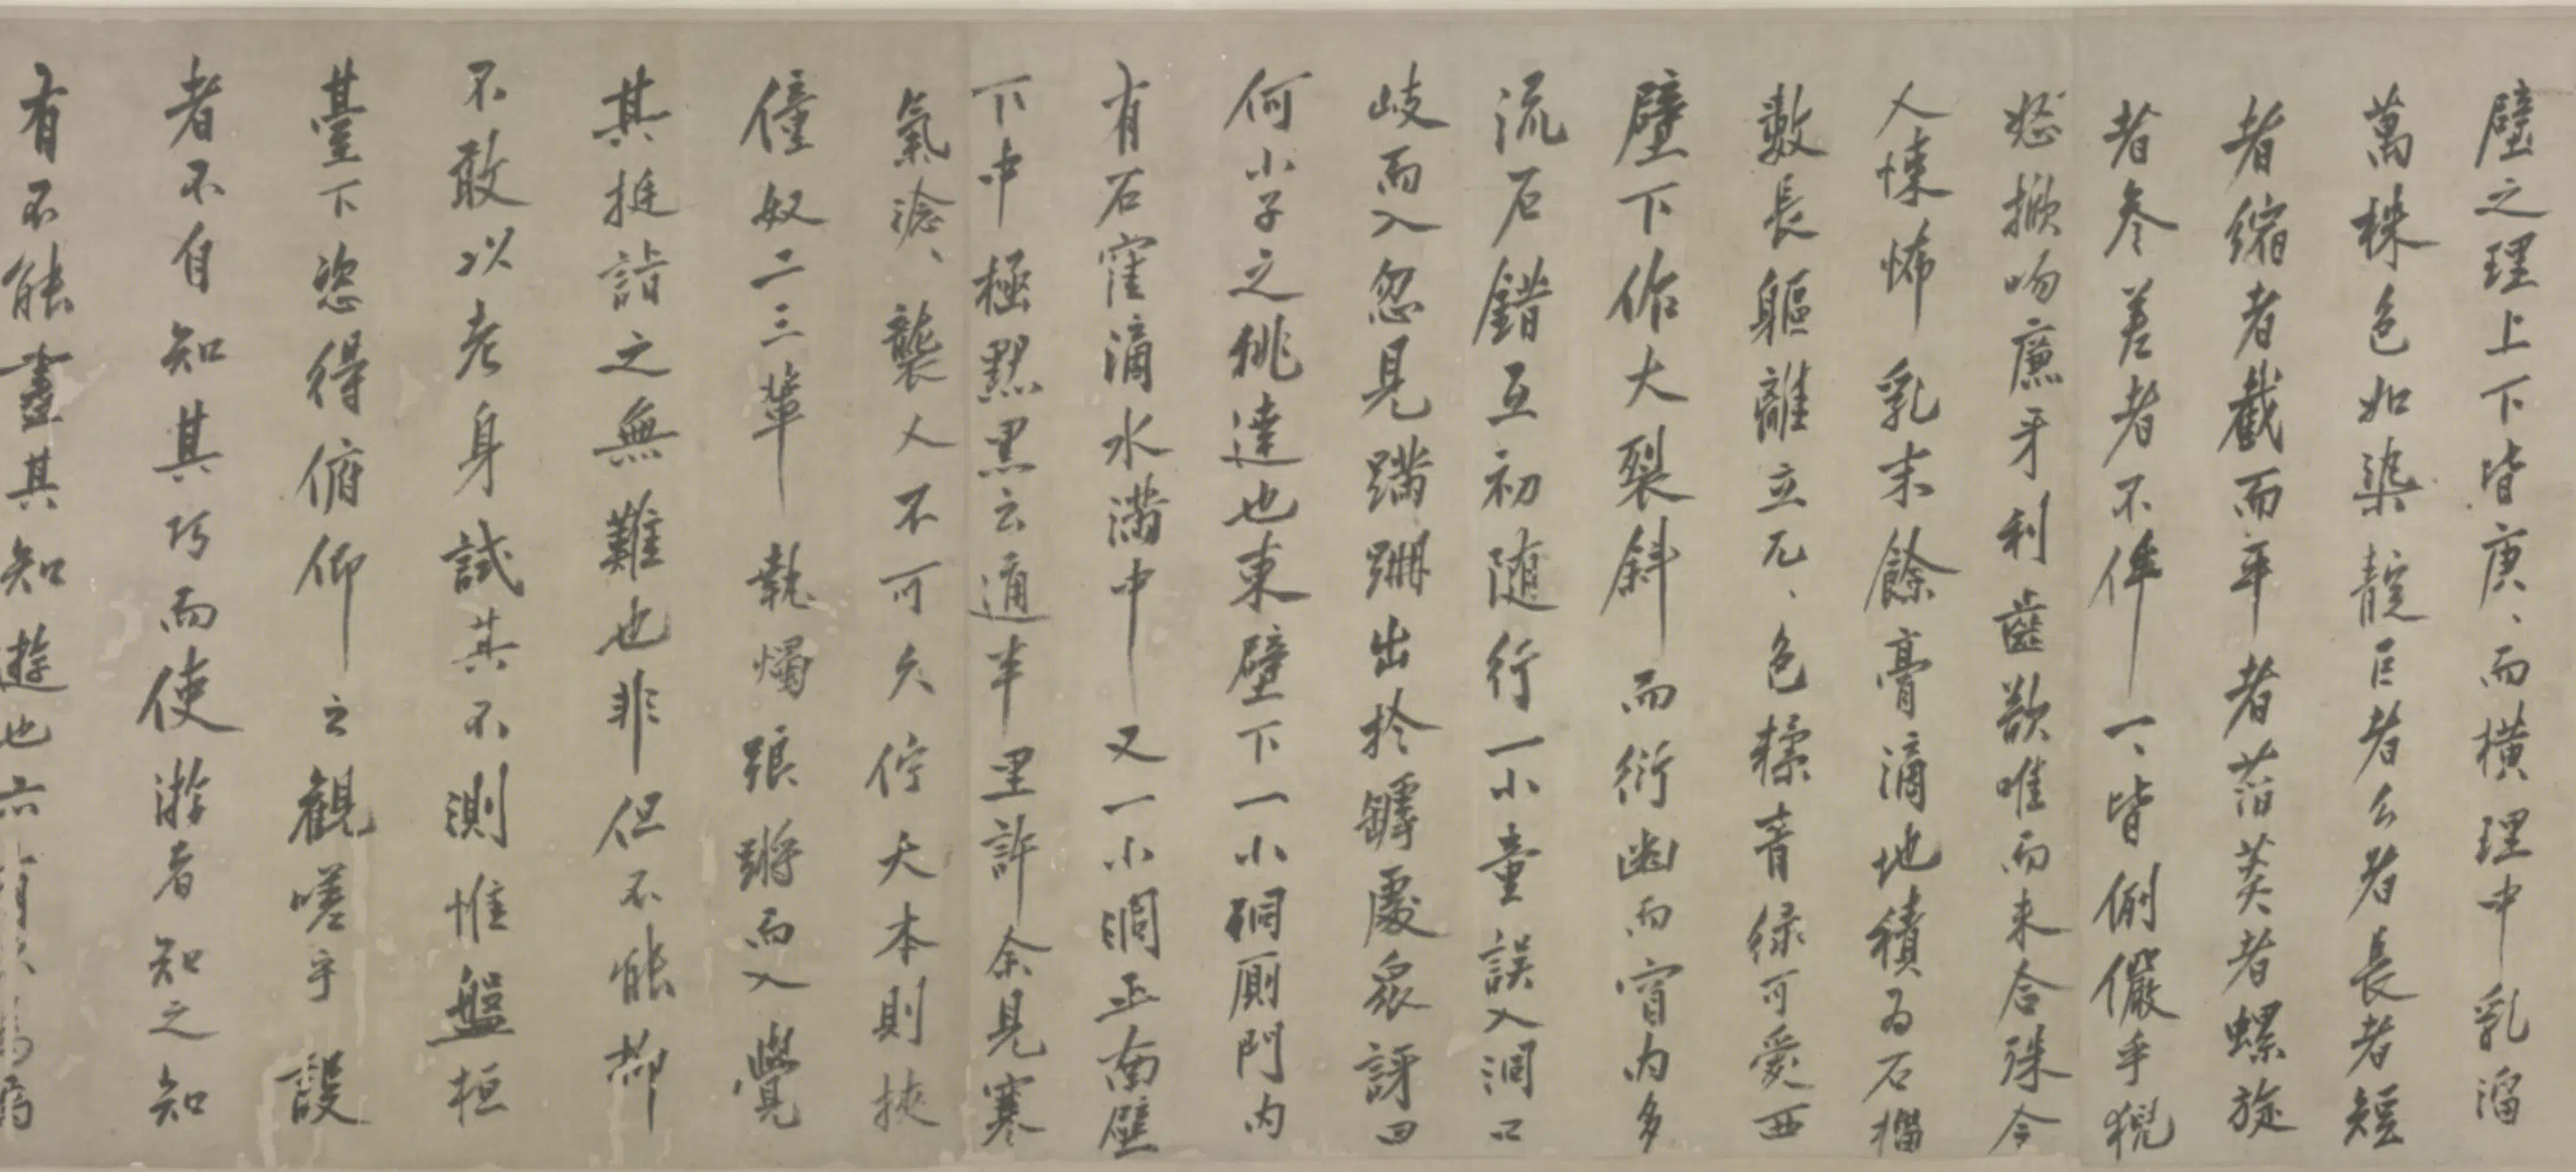 壁之理上下皆庚、而橫理中乳溜
萬株色如染靛巨者么者長者短
者縮者截而平者菡萏者螺旋
者參差者不侔一、皆倒儼乎猊
怒掀吻廉牙利齒欲唯而来合殊令
人悚怖乳末餘膏滴地積為石橊
數長軀離立兀、色糅青绿可愛西
壁下作大裂斜而衍幽而窅内多
流石錯互初随行一小童誤入洞口
岐而入忽見蹒跚出於罅處衆訝曰
何小子之佻達也東壁下一小硐厠門内
有石窪滴水满中又一小洞正南壁
下中極黑云通半里許余見寒
氣淰、襲人不可久佇大本則挾
僮奴二三輩執燭踉蹡而入覺
其挺詣之無難也非但不能抑
不敢以老身試其不測惟盤桓
臺下恣得俯仰之觀嗟乎設
者不自知其巧而使游者知之知
有不能盡其知遊也亦